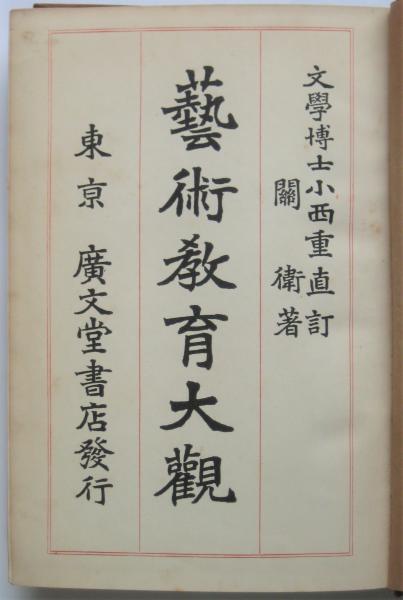 文學博士小西重直訂
關衛著
藝術敎育大觀
東京 廣文堂書店發行